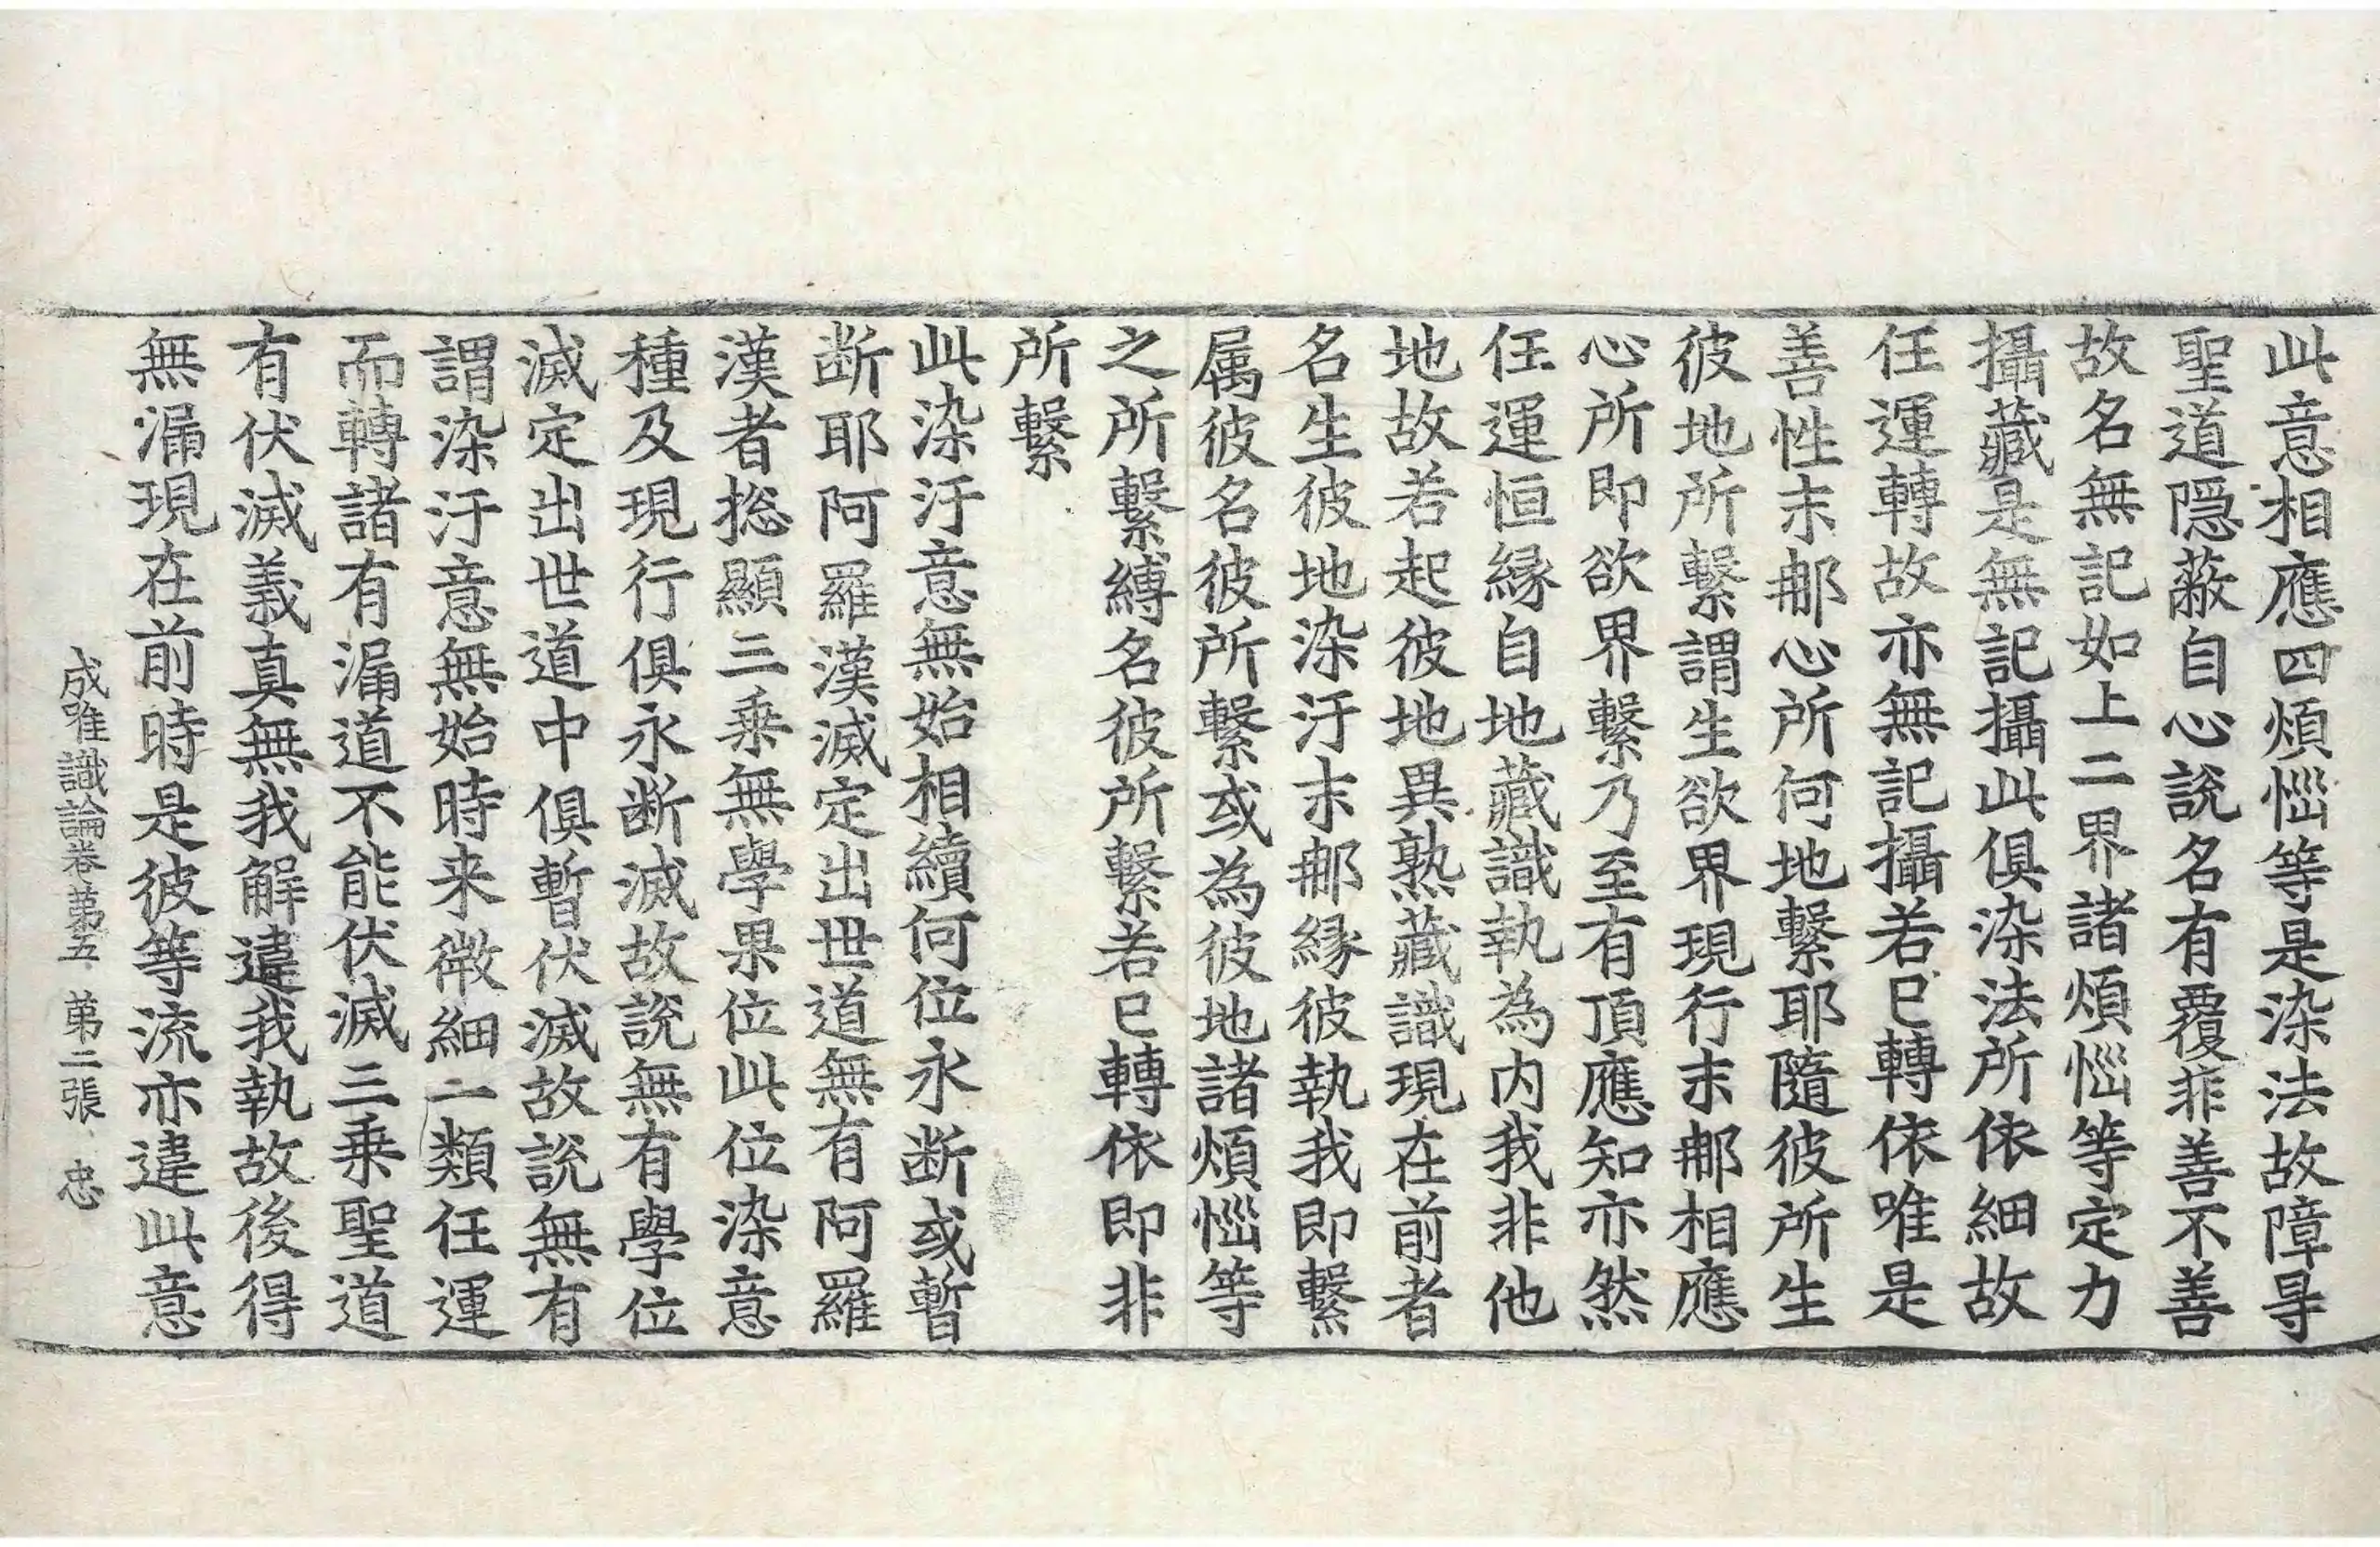 此意相應四煩惱等是染法故障㝵
聖道隱蔽自心說名有覆非善不善
故名無記如上二界諸煩惱等定力
攝藏是無記攝此俱染法所依細故
任運轉故亦無記攝若已轉依唯是
善性末那心所何地繫耶隨彼所生
彼地所繫謂生欲界現行末那相應
心所即欲界繫乃至有頂應知亦然
任運恒緣自地藏識執為內我非他
地故若起彼地異熟藏識現在前者
名生彼地染汙末那緣彼執我即繫
属彼名彼所繫或為彼地諸煩惱等
之所繫縛名彼所繫若已轉依即非
所繫
此染汙意無始相續何位永断或暫
断耶阿羅漢滅定出世道無有阿羅
漢者揔顯三乘無學果位此位染意
種及現行俱永断滅故說無有學位
滅定出世道中俱暫伏滅故說無有
謂染汙意無始時来微細一類任運
而轉諸有漏道不能伏滅三乘聖道
有伏滅義真無我解違我執故後得
無漏現在前時是彼等流亦違此意
成唯識論卷苐五 苐二張 忠